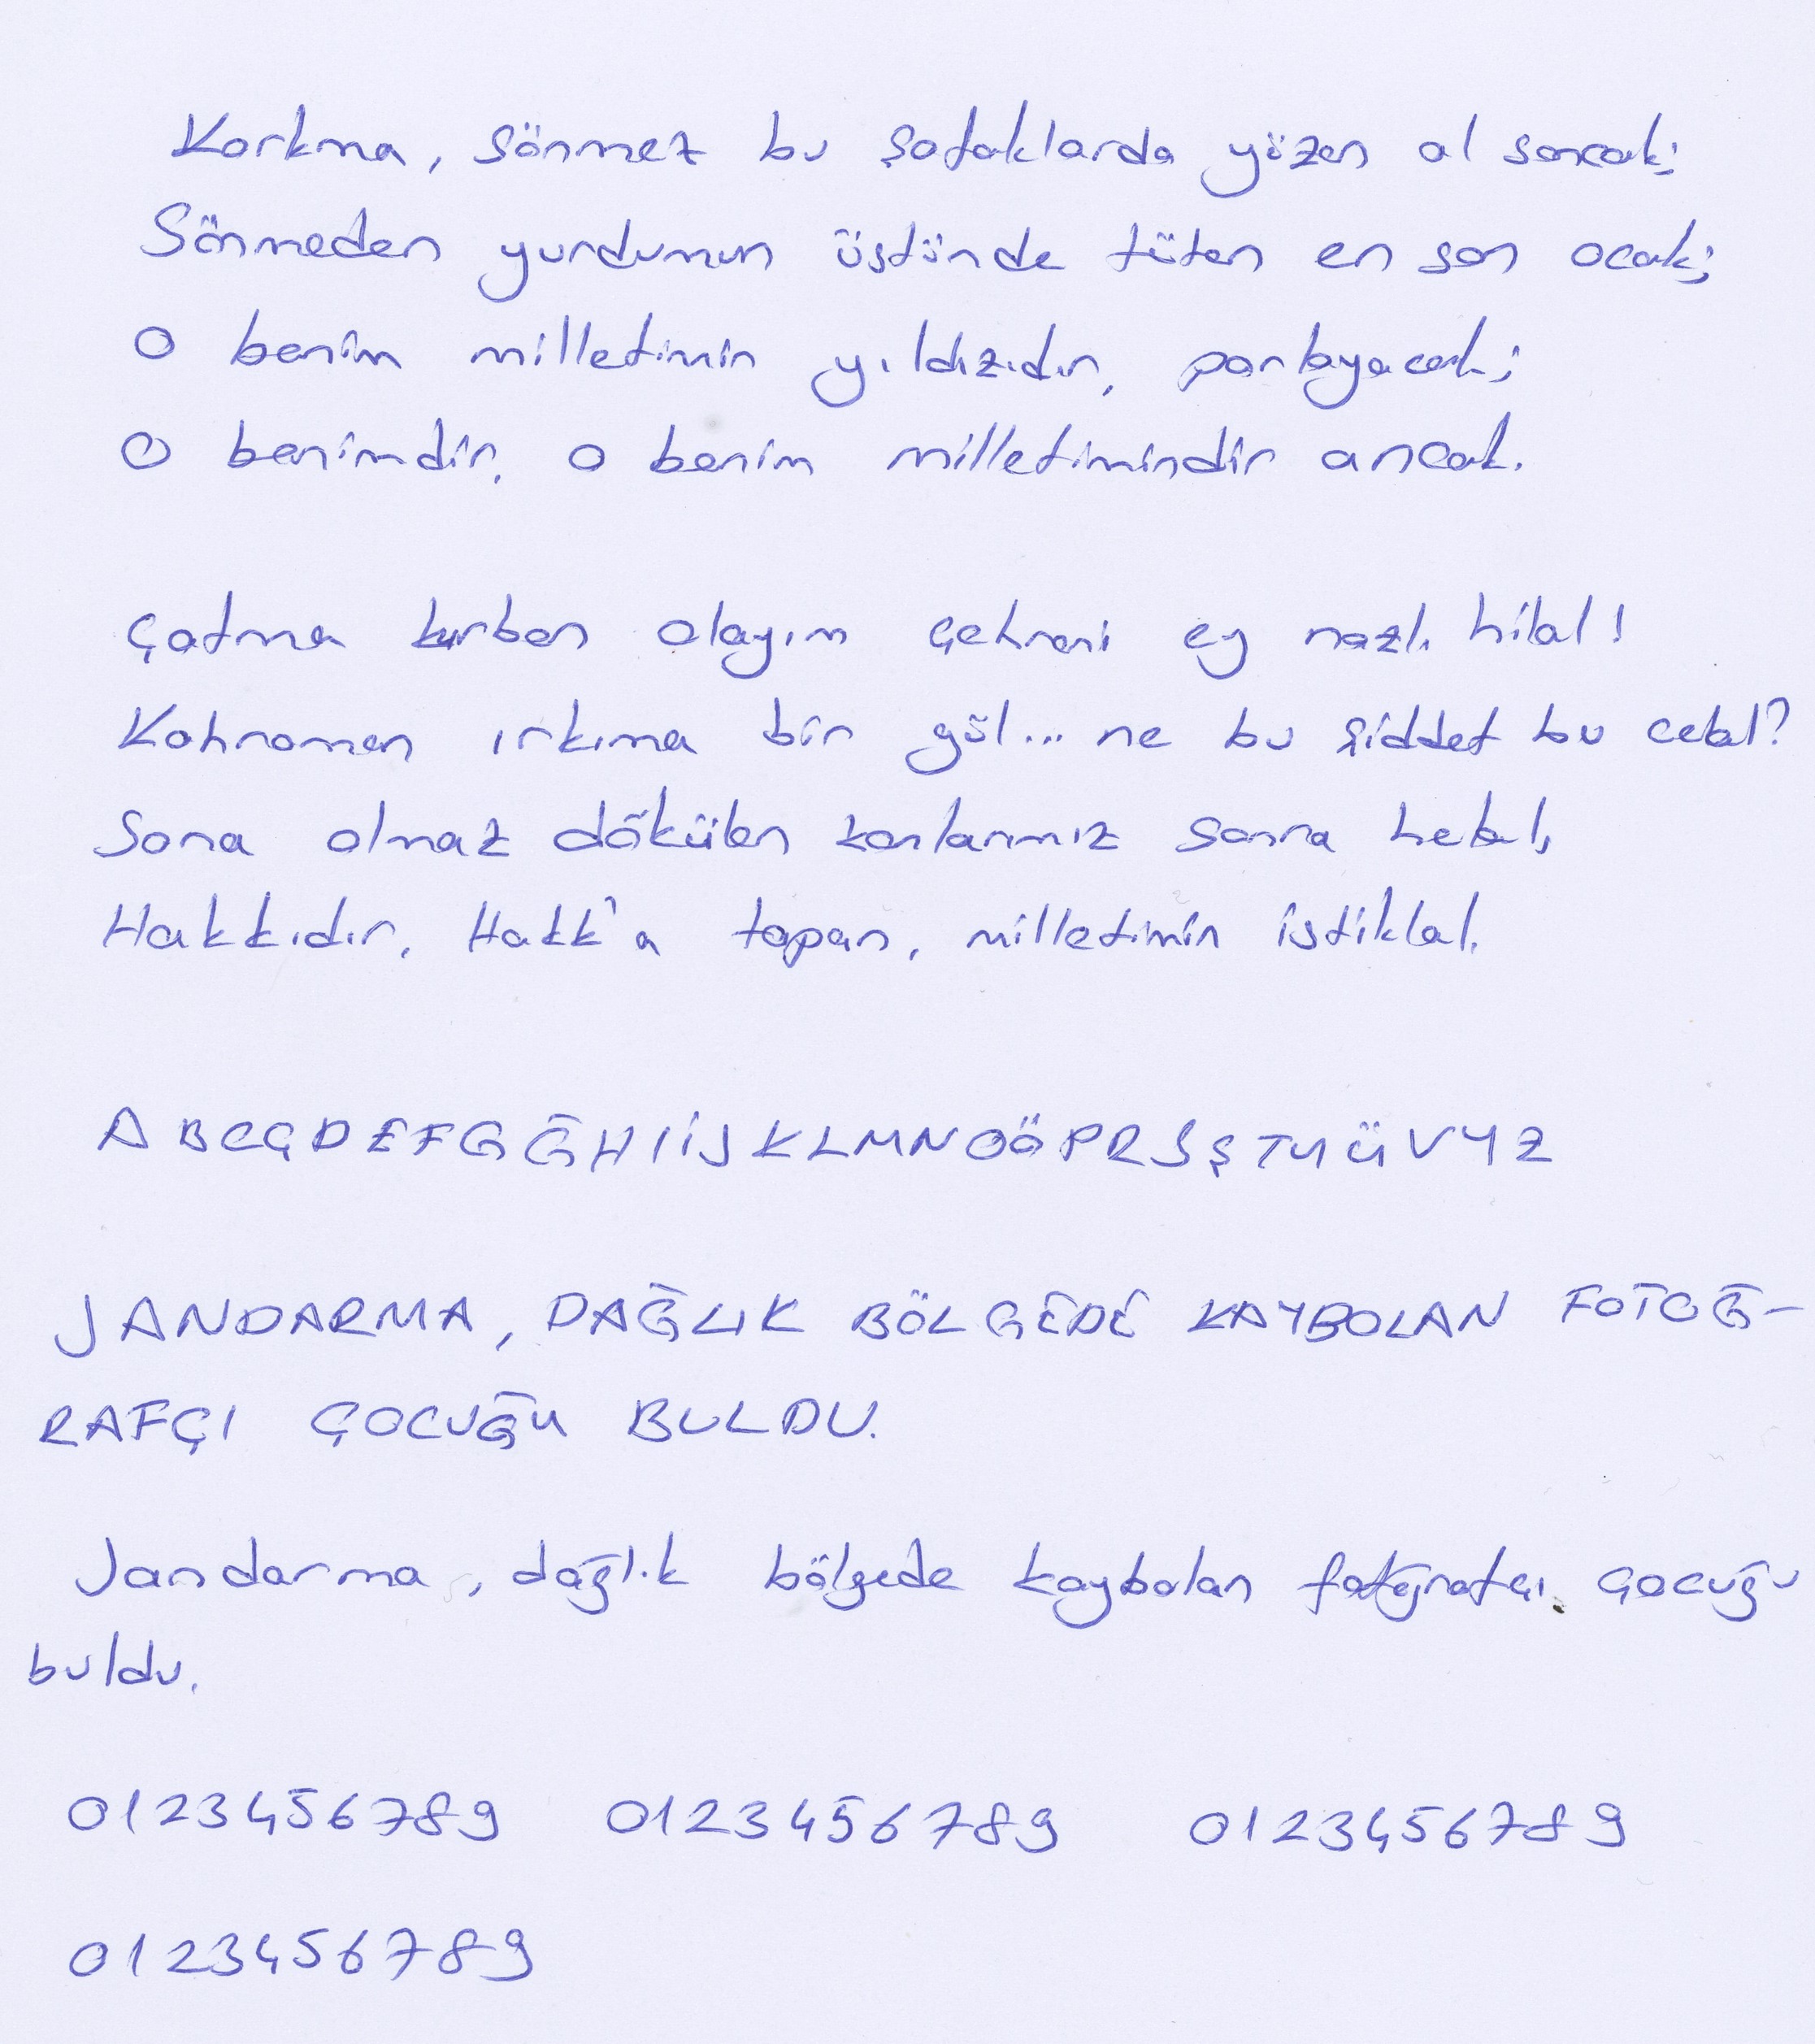 Korkma, sönmez bu şafaklarda yüzen al sancak;
Sönmeden yurdumun üstünde tüten en son ocak;
O benim milletimin yıldızıdır, parlayacak;
O benimdir, o benim milletimindir ancak.
Çatma kurban olayım çehreni ey nazlı hilal!
Kahraman ırkıma bir gül... ne bu şiddet bu celal?
Sana olmaz dökülen kanlarımız sonra helal,
Hakkıdır, Hakk'a tapan, milletimin istiklal.
A B C Ç D E F G Ğ H I İ J K L M N O Ö P R S Ş T U Ü V Y Z
JANDARMA, DAĞLIK BÖLGEDE KAYBOLAN FOTOĞ-
RAFÇI ÇOCUĞU BULDU.
Jandarma, dağlık bölgede kaybolan fotoğrafçı çocuğu
buldu.
0123456789 0123456789 0123456789
0123456789